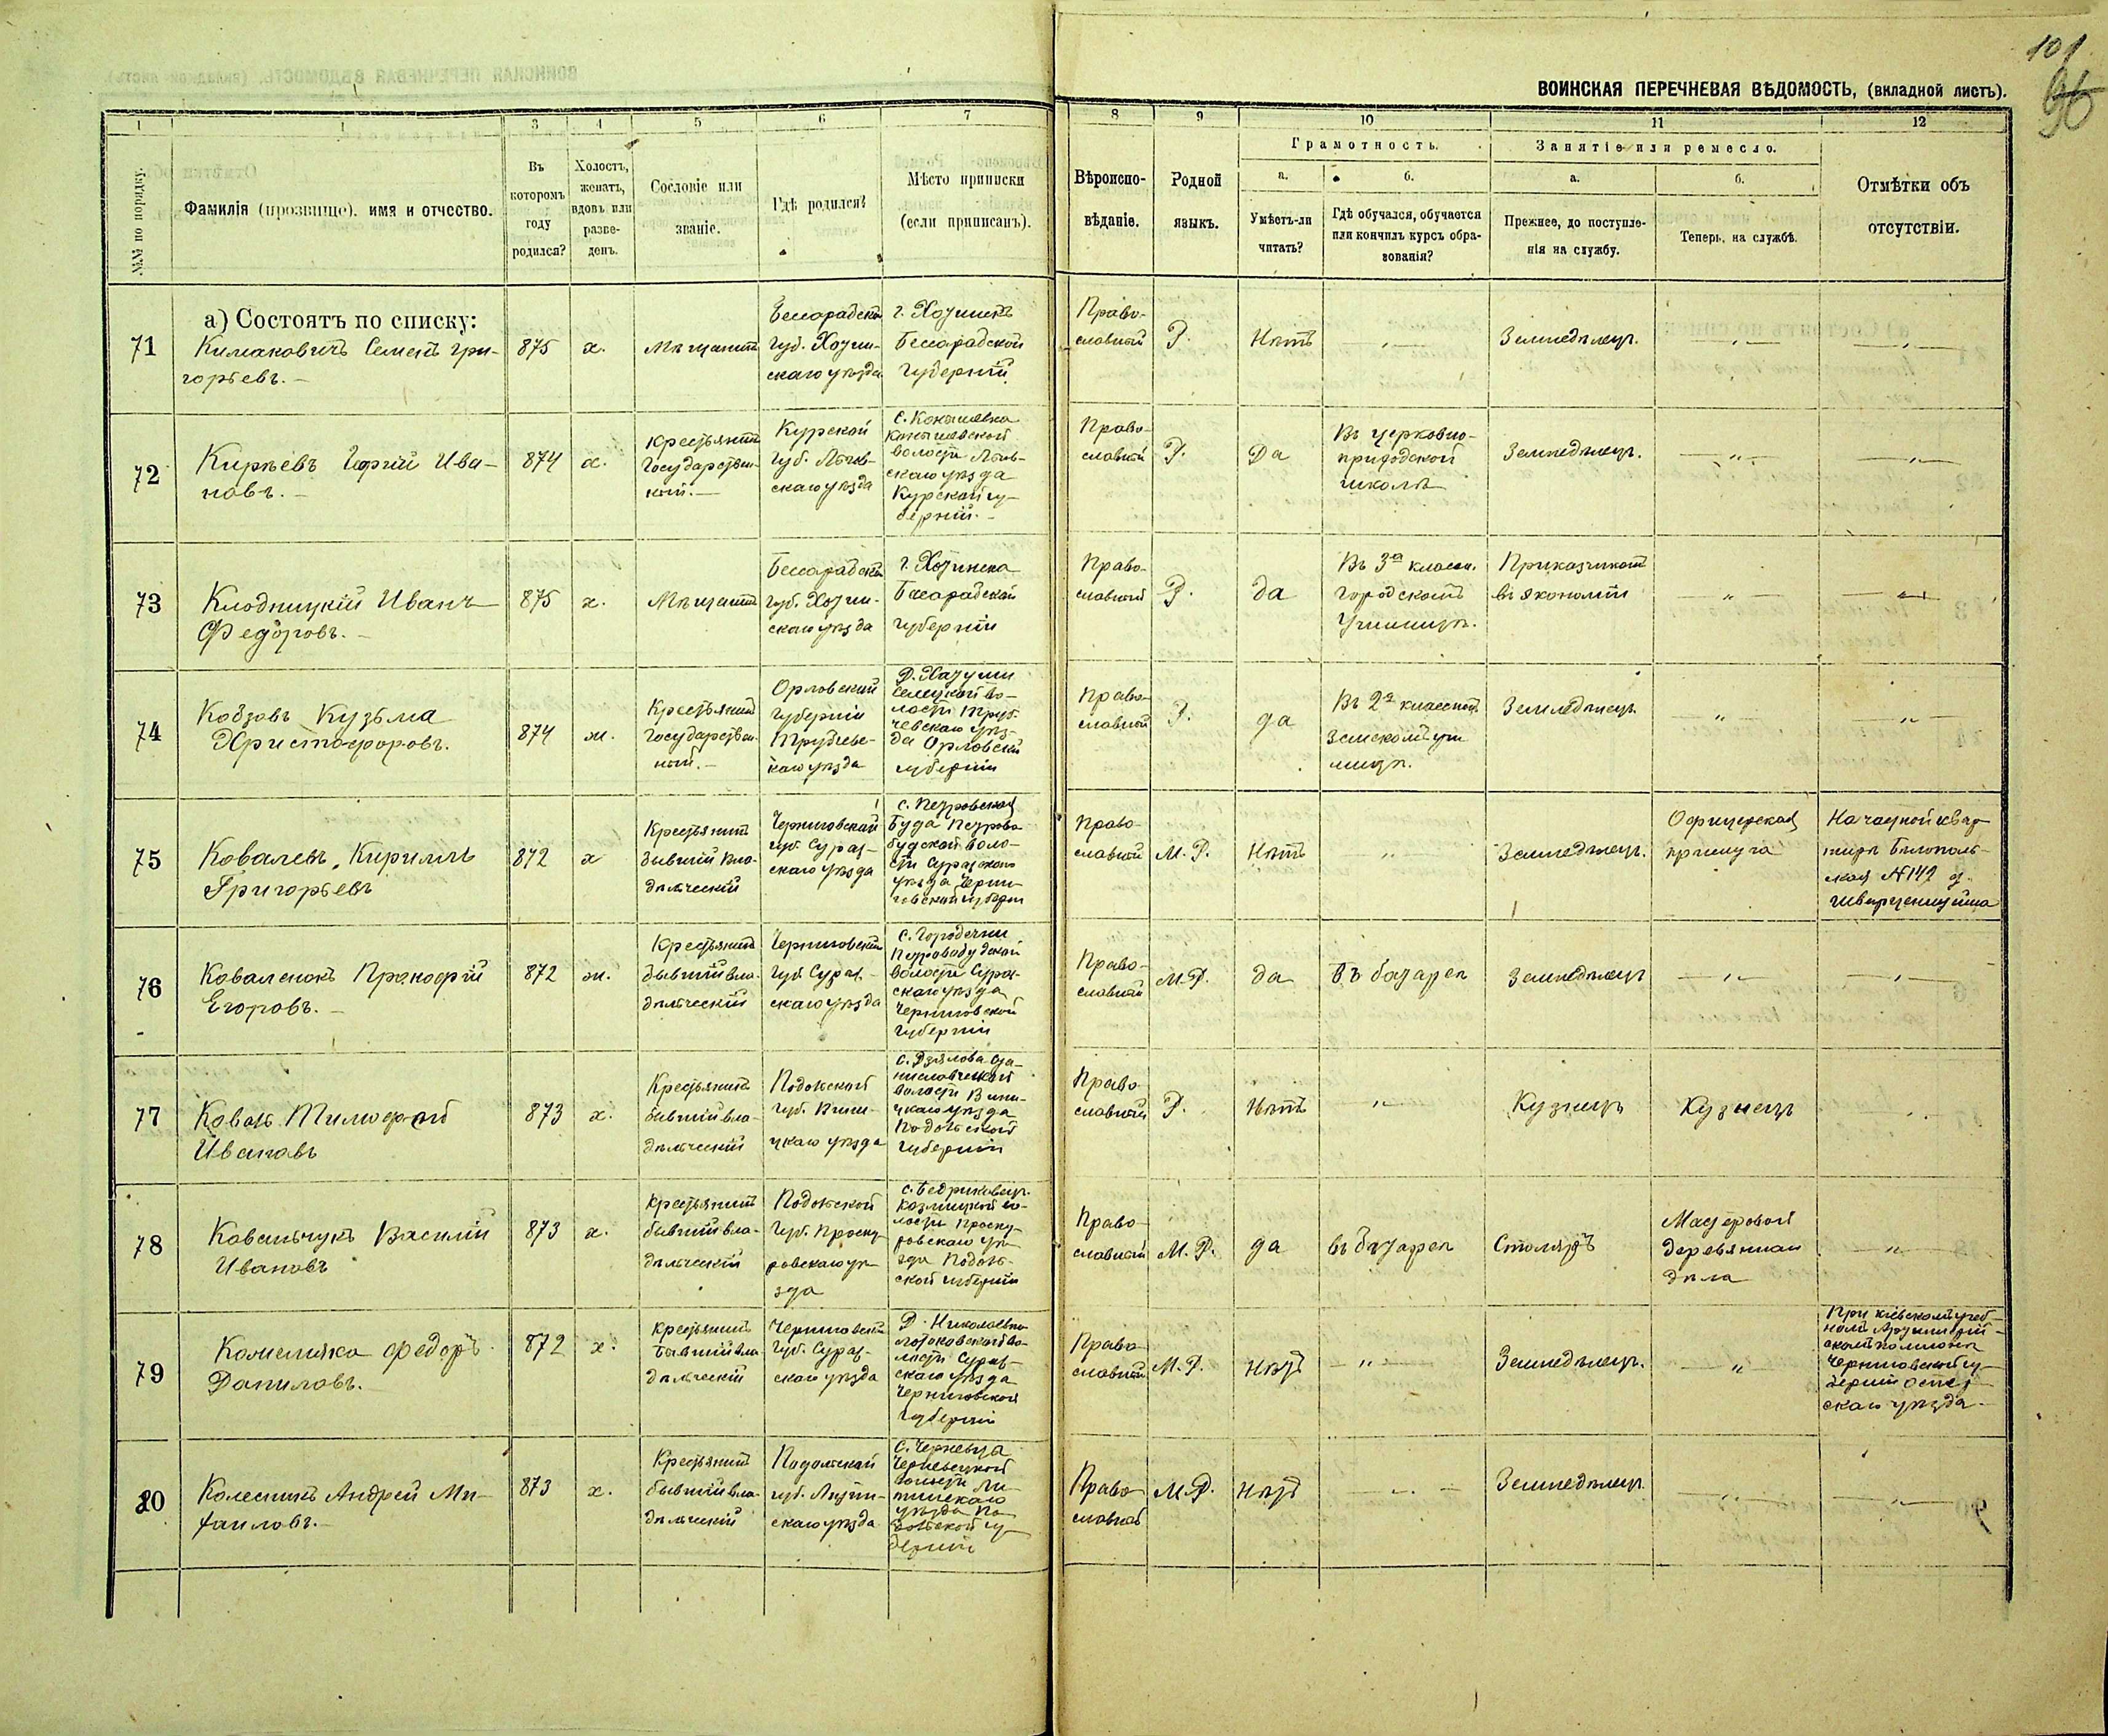 101
96
ВОИНСКАЯ ПЕРЕЧНЕВАЯ ВѢДОМОСТЬ, (вкладной листъ).
1 1 3 4 5 6 7 8 9 10 11 12
№№ по порядку.
Фамилія (прозвище), имя и отчество.
Въ
которомъ
году
родился?
Холостъ,
женатъ,
вдовъ или
разве-
денъ.
Сословіе или
званіе.
Гдѣ родился?
Мѣсто приписки
(если приписанъ).
Вѣроиспо-
вѣданіе.
Родной
языкъ.
Грамотность.
а.
Умѣетъ-ли
читать?
б.
Гдѣ обучался, обучается
или кончилъ курсъ обра-
зованія?
Занятіе или ремесло.
а.
Прежнее, до поступле-
нія на службу.
б.
Теперь, на службѣ.
Отмѣтки объ
отсутствіи.
а) Состоятъ по списку:
71
Кимаковичъ Семенъ Гри-
горьевъ.
875
х.
Мѣщанинъ
Бессарабской
губ. Хотин-
скаго уѣзда
г. Хотинъ
Бессарабской
губерніи
Право-
славной
Р.
Нѣтъ
Земледѣлецъ.
72
Кирѣевъ Сергѣй Ива-
новъ.
874
х.
Крестьянинъ
Государствен-
ный.
Курской
губ. Льгов-
скаго уѣзда
С. Конышевка
Конышевской
волости Льгов-
скаго уѣзда
Курской гу-
берніи.
Право-
славной
Р.
Да
Въ церковно-
приходской
школѣ
Земледѣлецъ.
73
Клодницкій Иванъ
Федоровъ.
875
х.
Мѣщанинъ
Бессарабской
губ. Хотин-
скаго уѣзда
г. Хотинска
Бессарабской
губерніи
Право-
славной
Р.
да
Въ 3а классн.
городскомъ
училищѣ.
Приказчикомъ
въ экономіи
74
Кобзовъ Кузьма
Христофоровъ.
874
ж.
Крестьянинъ
Государствен-
ный.
Орловской
губерніи
Трубчев-
скаго уѣзда
волости Труб-
чевскаго уѣз-
да Орловской
губерніи
Право-
славной
Р.
да
Въ 2а классномъ
Земскомъ учи
лищѣ.
Земледѣлецъ
75
Ковалевъ, Кириллъ
Григорьевъ
872
х
Крестьянинъ
бывшій вла-
дѣльческій
Черниговской
губ. Сураж-
скаго уѣзда
с. Петровская
Буда Петрово
будской воло-
сти Суражскаго
уѣзда Черни-
говской губерніи
Право-
славной
М. Р.
Нѣтъ
Земледѣлецъ.
Офицерская
прислуга
На частной квар-
тирѣ Бѣлополь-
ская № 147 д.
76
Коваленокъ Прокофій
Егоровъ.
872
ж.
Крестьянинъ
бывшій вла-
дѣльческій
Черниговской
губ. Сураж-
скаго уѣзда
с. Городечни
Петровобудской
волости Сураж-
скаго уѣзда
Черниговской
губерніи
Право-
славной
М. Р.
да
въ батареѣ
Земледѣлецъ
77
Коваль Тимофей
Ивановъ
873
х.
Крестьянинъ
бывшій вла-
дѣльческій
Подольской
губ. Винн-
ицкаго уѣзда
волости Вин-
ицкаго уѣзда
Подольской
губерніи
Право
славной
Р.
Нѣтъ
Кузнецъ
Кузнецъ
78
Ковальчукъ Василій
Ивановъ
873
х.
Крестьянинъ
бывшій вла-
дѣльческій
Подольской
губ. Проску-
ровскаго уѣ-
зда
волости Проску-
ровскаго уѣ-
зда Подоль-
ской губерніи
Право-
славной
М. Р.
да
въ батареѣ
Столяръ
Мастеровой
деревяннаго
дѣла
79
Федоръ
Даниловъ.
872
х.
Крестьянинъ
бывшій вла
дѣльческій
Черниговской
губ. Сураж-
скаго уѣзда
Д. Николаевка
волости Сураж-
скаго уѣзда
Черниговской
губерніи
Право
славной
М. Р.
Нѣтъ
Земледѣлецъ.
При кіевскомъ учеб-
номъ Артиллерій-
скомъ полигонѣ
Черниговской гу-
берніи Остер-
скаго уѣзда.
80
Колесникъ Андрей Ми-
хаиловъ.
873
х.
Крестьянинъ
бывшій вла-
дѣльческій
Подольской
губ. Летин-
скаго уѣзда
волости Ле-
тинскаго
уѣзда По-
дольской гу-
берніи
Право
славной
М. Р.
Нѣтъ
Земледѣлецъ